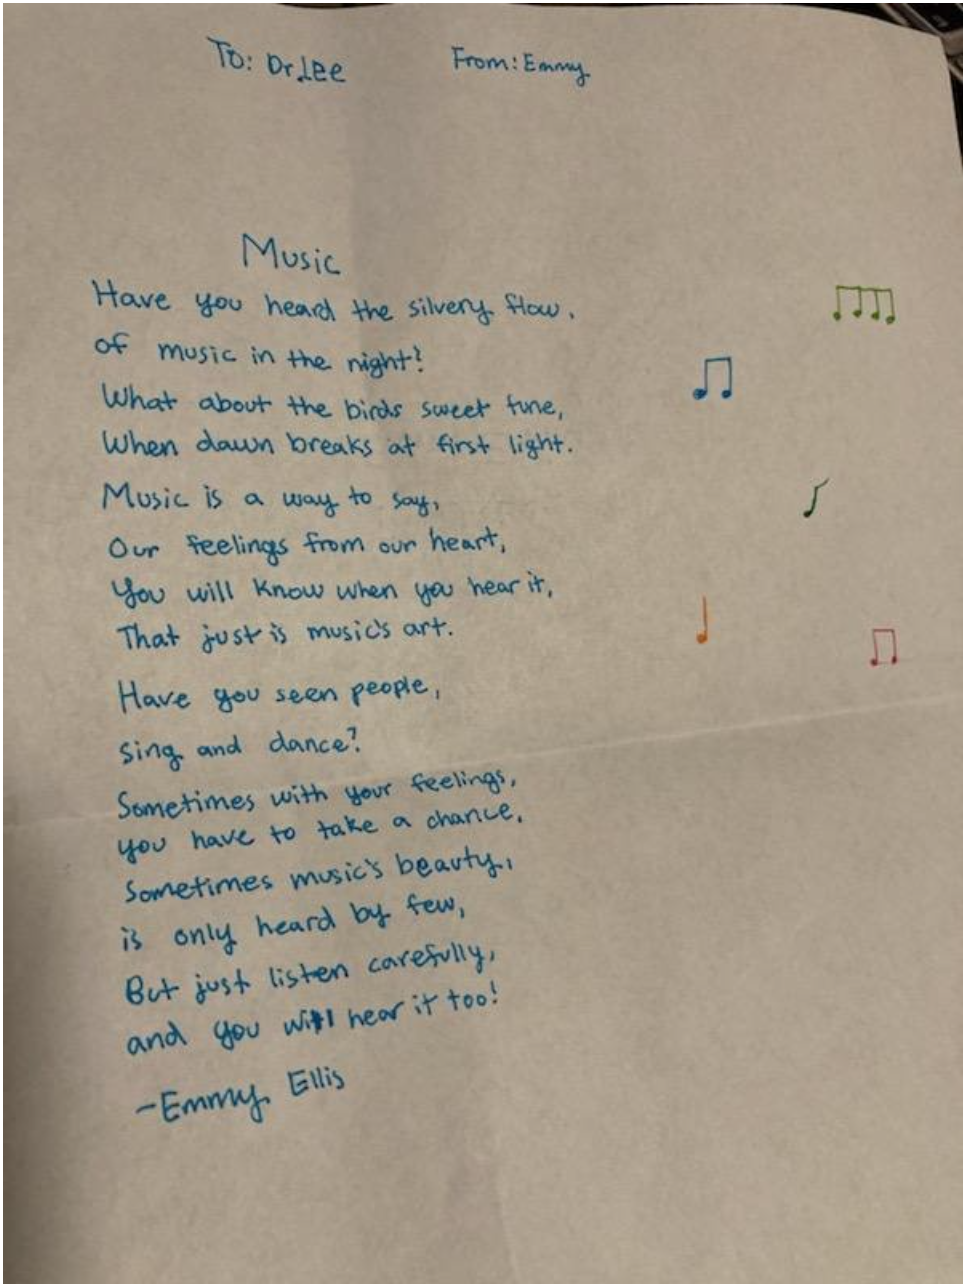 To: Dr. Lee From: Emmy
Music
Have you heard the silvery flow,
of music in the night?
What about the birds sweet tune,
When dawn breaks at first light.
Music is a way to say,
Our feelings from our heart,
You will know when you hear it,
That just is music's art.
Have you seen people,
sing and dance?
Sometimes with your feelings,
you have to take a chance.
Sometimes music's beauty,
is only heard by few,
But just listen carefully,
and you will hear it too!
-Emmy Ellis